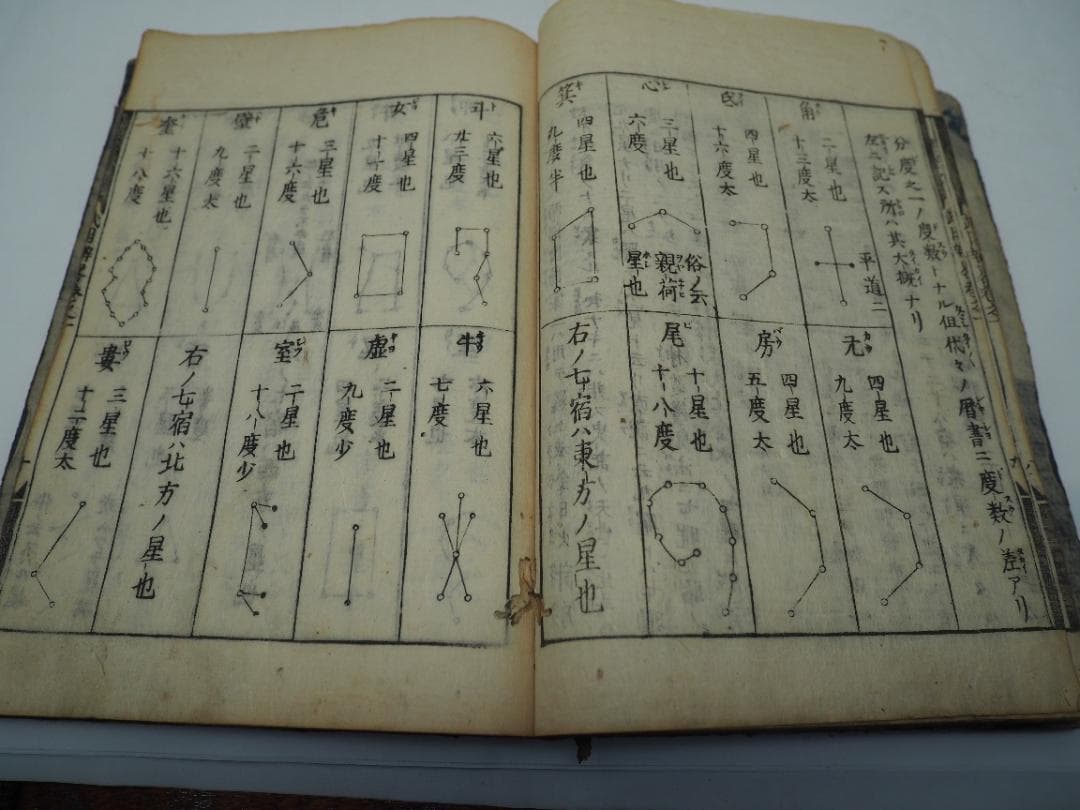 分度之一ノ度数トナル但代々ノ暦書ニ度数ノ差アリ
左ニ記ス所ハ其大概ナリ
角
二星也
十二度太
平道二
亢
四星也
九度太
氐
四星也
十六度太
房
四星也
五度太
心
三星也
六度
俗ノ云
親荷
星也
尾
十星也
十八度
箕
四星也
九度半
右ノ七宿ハ東方ノ星也
斗
六星也
廿三度
牛
六星也
七度
女
四星也
十一度
虚
二星也
九度少
危
三星也
十六度
室
二星也
十八度少
壁
二星也
九度太
右ノ七宿ハ北方ノ星也
奎
十六星也
十八度
婁
三星也
十二度太